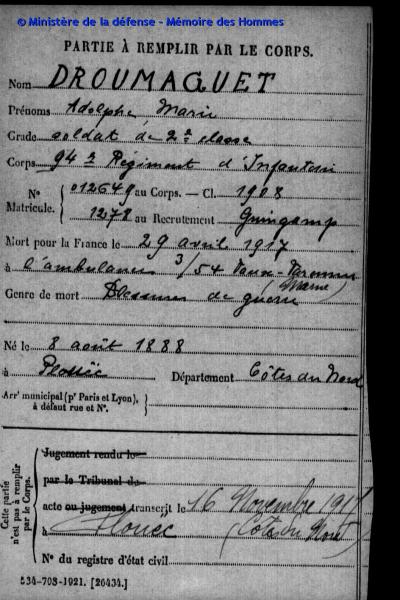 © Ministère de la défense - Mémoire des Hommes
PARTIE À REMPLIR PAR LE CORPS.
Nom DROUMAGUET
Prénoms Adolphe Marie
Grade soldat de 2e classe
Corps 94e Régiment d'Infanterie
N° Matricule. 012649 au Corps. — Cl. 1908
1278 au Recrutement Guingamp
Mort pour la France le 29 avril 1917
à l'ambulance 3/54 Vaux-Varennes
(Marne)
Genre de mort Blessures de guerre
Né le 8 août 1888
à Département Côtes du Nord
Arrt municipal (pr Paris et Lyon), à défaut rue et N°.
Cette partie n'est pas à remplir par le Corps.
Jugement rendu le
par le Tribunal de
acte ou jugement transcrit le 16 Novembre 1917
à Plouëc (Côtes du Nord)
N° du registre d'état civil
534-708-1921. [26434.]